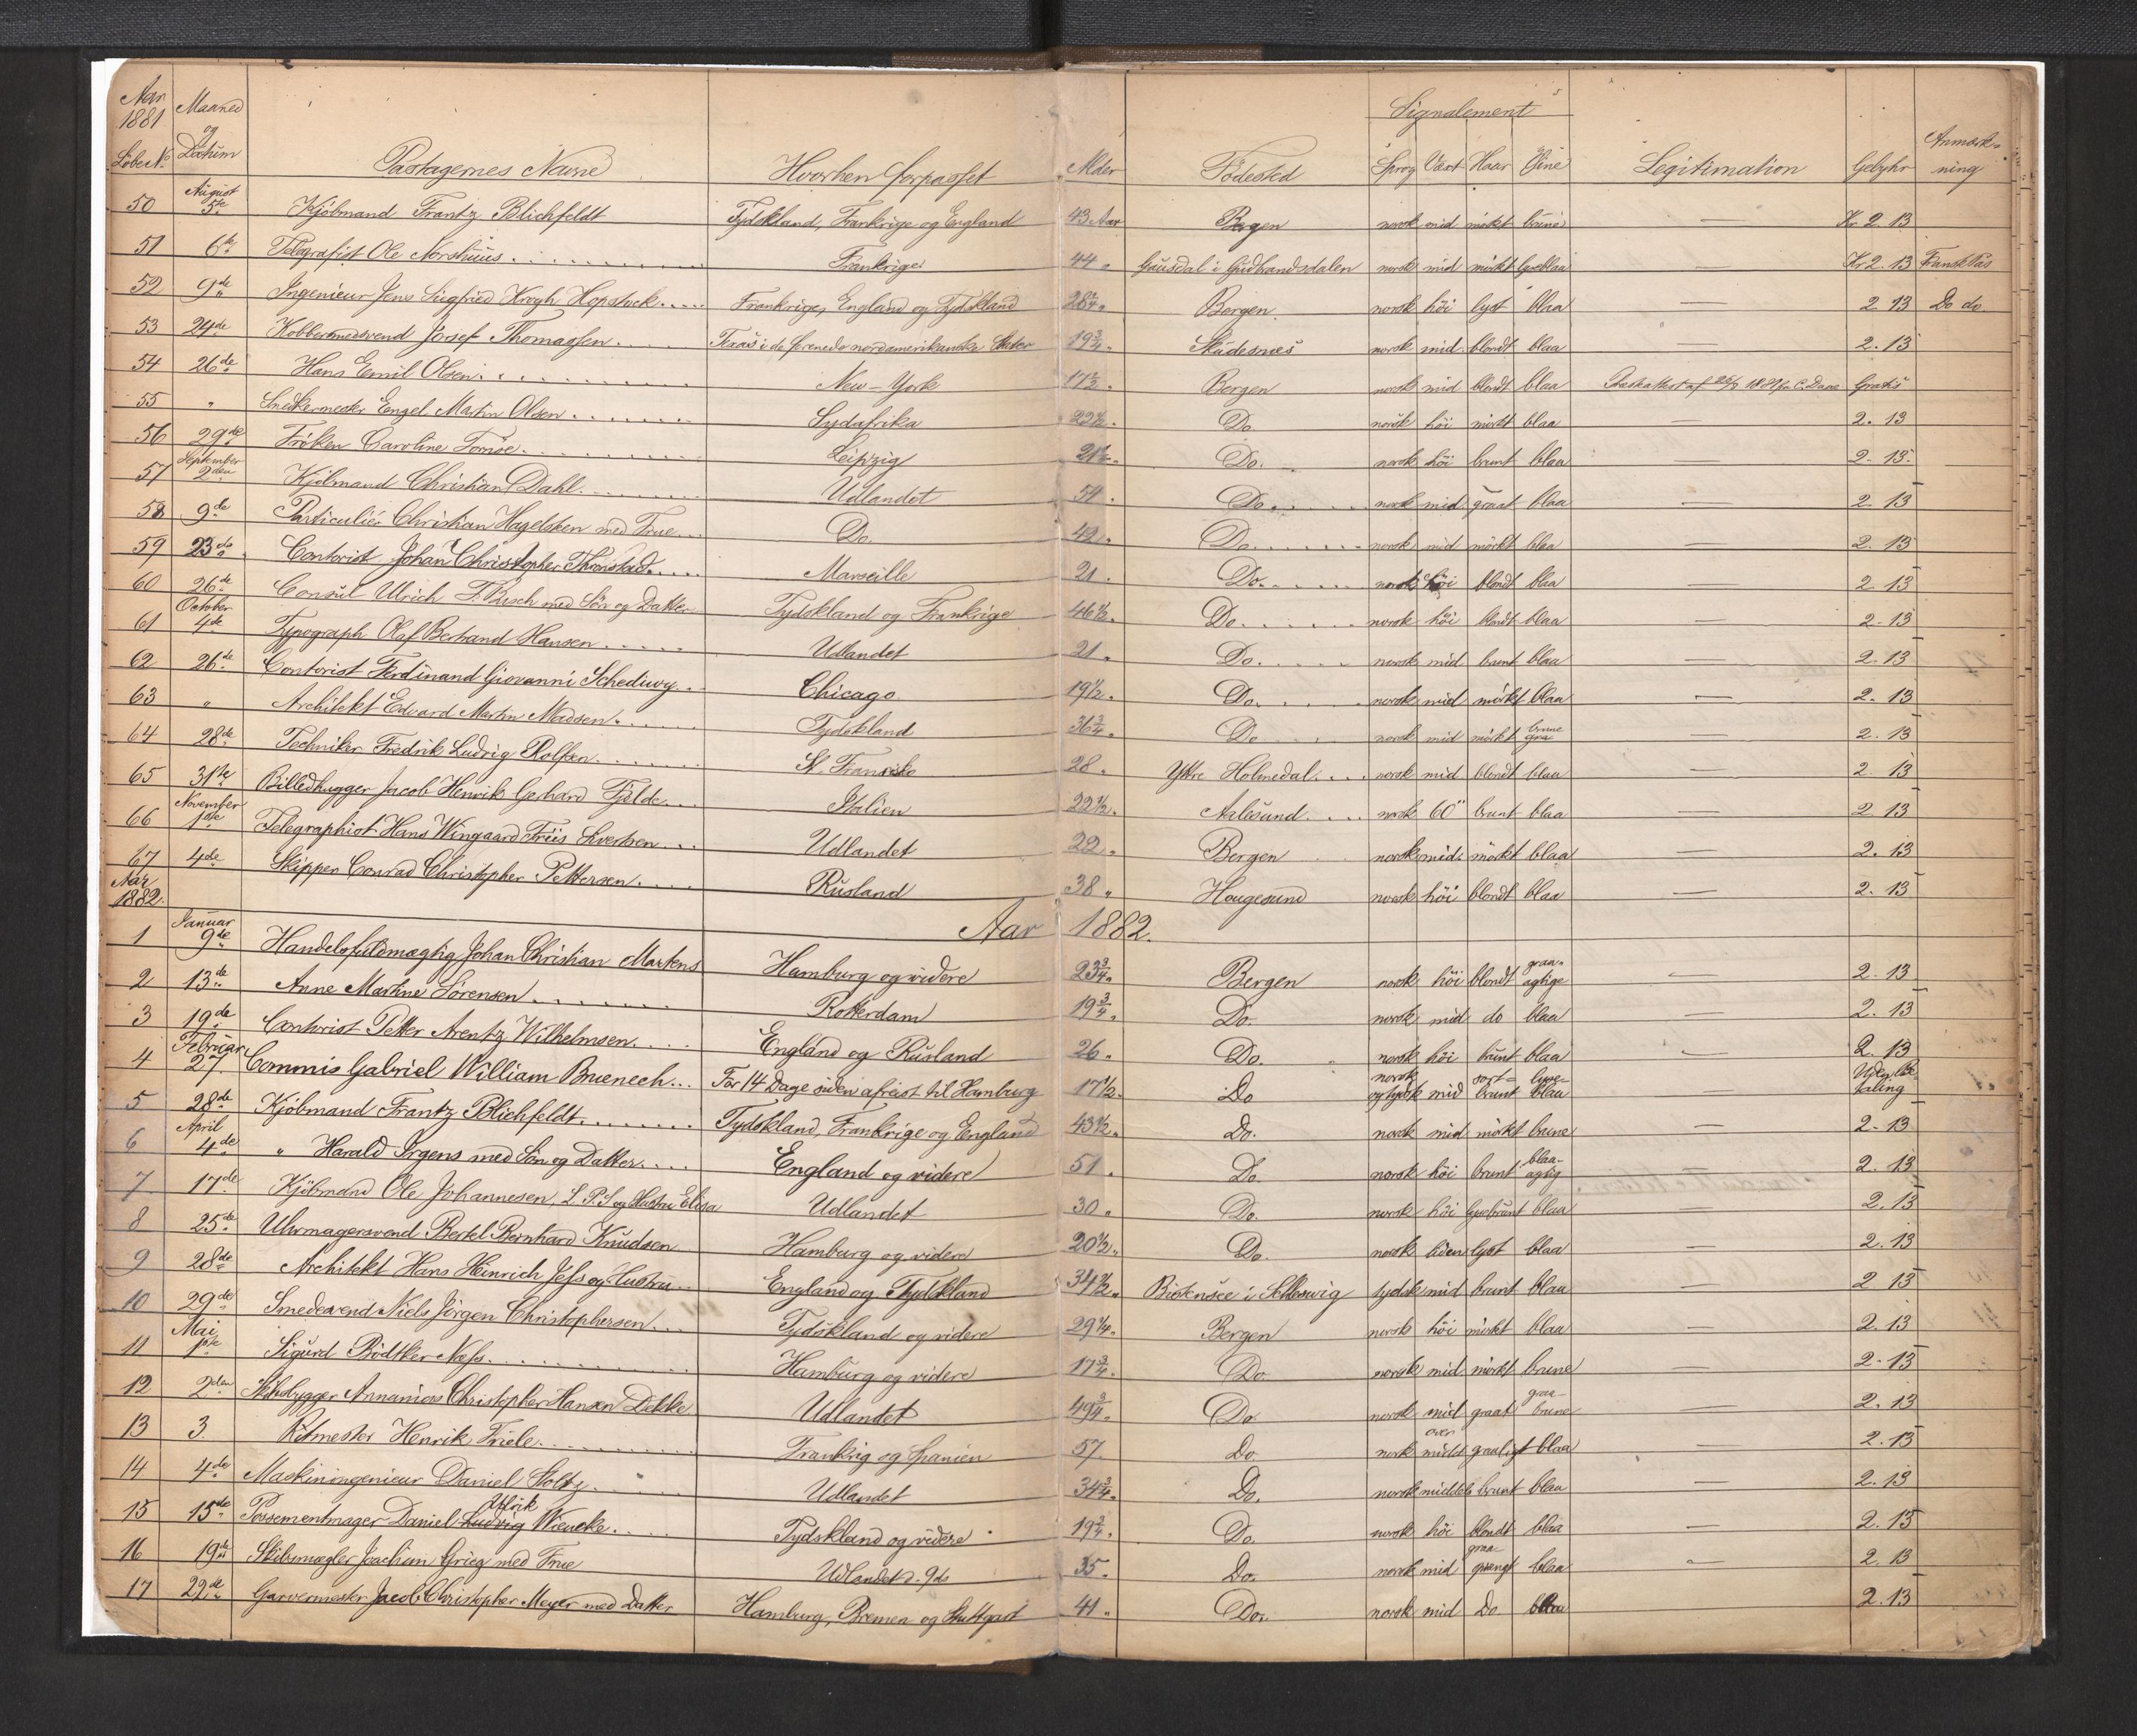 Aar 1881 Maaned og Datum Signalement
Löbe No Passagernes Navne Hvorhen forpasset Alder Födested Sprog Vext Haar Öine Legitimation Gebyhr Anmærkning
50 August 5te Kjöbmand Frantz Blichfeldt Tydskland, Frankrige og England 43 Aar Bergen norsk mid mörkt brune — Kr 2.13
51 6te Telegrafist Ole Norshuus Frankrige 44 " Gausdal i Gudbrandsdalen norsk mid mörkt lyseblaa Kr 2.13 Fransk Pas
52 9de Ingenieur Jens Siegfried Krogh Hopstock Frankrige, England og Tydskland 28¼ " Bergen norsk höi lyst blaa — 2 13 Do do
53 24de Kobbersmedsvend Josef Thomassen Texas i de forenede nordamerikanske Stater 19¾ " Skudesnes norsk mid blondt blaa — 2.13
54 26de Hans Emil Olsen New-York 11½ Bergen norsk mid blondt blaa Gratis
55 " Snedkermester Engel Martin Olsen Sydafrika 22½ Do norsk höi mörkt blaa — 2.13
56 29de Fröken Caroline Leipzig 21½ " Do. norsk höi brunt blaa — 2.13
57 September 2den Kjöbmand Christian Dahl Udlandet 54 Do norsk mid graat blaa — 2 13
58 9de Particulier Christian Hagelsteen med Frue Do. 42 Do norsk mid mörkt blaa — 2.13
59 23de Contorist Johan Christopher Thronstad Marseille 21 Do. norsk höi blondt blaa — 2 13
60 26de Consul Ulrich F. Busch med Sön og Datter Tydskland og Frankrige 46½ Do. norsk höi blondt blaa — 2.13
61 October 4de Typograph Olaf Berhand Hansen Udlandet 21 Do. norsk mid brunt blaa — 2.13
62 26de Contorist Ferdinand Giovanni Schediwy Chicago 19½ Do. norsk mid mörkt blaa — 2.13
63 " Architekt Edvard Martin Madsen Tydskland 36¾ Do norsk mid mörkt brune graa — 2.13
64 28de Techniker Fredrik Ludvig Rolfsen St. Fransisko 28 Yttre Holmedal norsk mid blondt blaa — 2 13
65 31te Billedhugger Jacob Henrik Gerhard Fjelde Italien 22½ Aalesund norsk 60" brunt blaa — 2 13
66 November 1ste Telegraphist Hans Wingaard Friis Evertsen Udlandet 22 Bergen norsk mid mörkt blaa — 2.13
67 4de Skipper Conrad Christopher Pettersen Rusland 38 " Hougesund norsk höi blondt blaa — 2.13
Aar 1882. Aar 1882.
1 Januar 9de Handelsfuldmægtig Johan Christian Martens Hamburg og videre 23¾ Bergen norsk höi blondt graaagtige — 2.13
2 13de Anne Martine Sörensen Rotterdam 19¾ Do. norsk mid do blaa — 2.13
3 19de Contorist Petter Arentz Wilhelmsen England og Rusland 26 " Do. norsk höi brunt blaa — 2.13
4 Februar 27 Commis Gabriel William Bruenech For 14 Dage siden afreist til Hamburg 17½ Do norsk og tydsk mid sortbrunt lyseblaa Uden Betaling
5 28de Kjöbmand Frantz Blichfeldt Tydskland, Frankrige og England 43½ " Do. norsk mid mörkt brune — 2.13
6 April 4de " Harald Irgens med Sön og Datter England og videre 51 Do. norsk höi brunt blaaagtig — 2.13
7 17de Kjöbmand Ole Johannesen, L. P. S og Hustru Elisa Udlandet 30 " Do. norsk höi lysebrunt blaa — 2.13
8 25de Uhrmagersvend Bertel Bernhard Knudsen Hamburg og videre 20½ " Do. norsk liden lyst blaa — 2.13
9 28de Architekt Hans Heinrich Jess og Hustru England og Tydskland 34½ " i Schleswig tydsk mid brunt blaa — 2 13
10 29de Smedesvend Niels Jörgen Christophersen Tydskland og videre 29¼ " Bergen norsk höi mörkt blaa — 2.13
11 Mai 1ste Sigurd Bödtker Næss Hamburg og videre 17¾ Do norsk mid mörkt brune — 2.13
12 2den Skibsbygger Annanias Christopher Hansen Dekke Udlandet 49¾ Do. norsk mid graat graabrune — 2.13
13 3 Ritmester Henrik Friele Frankrig og Spanien 57 Do. norsk over middel graaligt blaa — 2.13
14 4de Maskiningenieur Daniel Stoltz Udlandet 34¾ " Do. norsk middels brunt blaa — 2.13
15 15de Possementmager Daniel Ludvig Ulrik Wiencke Tydskland og videre 19¾ Do. norsk höi blondt blaa — 2.13
16 19de Skibsmægler Joachim Grieg med Frue Udlandet 35 Do. norsk mid graasprengt blaa — 2.13
17 22de Garvermester Jacob Christopher Meyer med Datter Hamburg, Bremen og Stuttgart 41 " Do. norsk mid Do. blaa 2.13